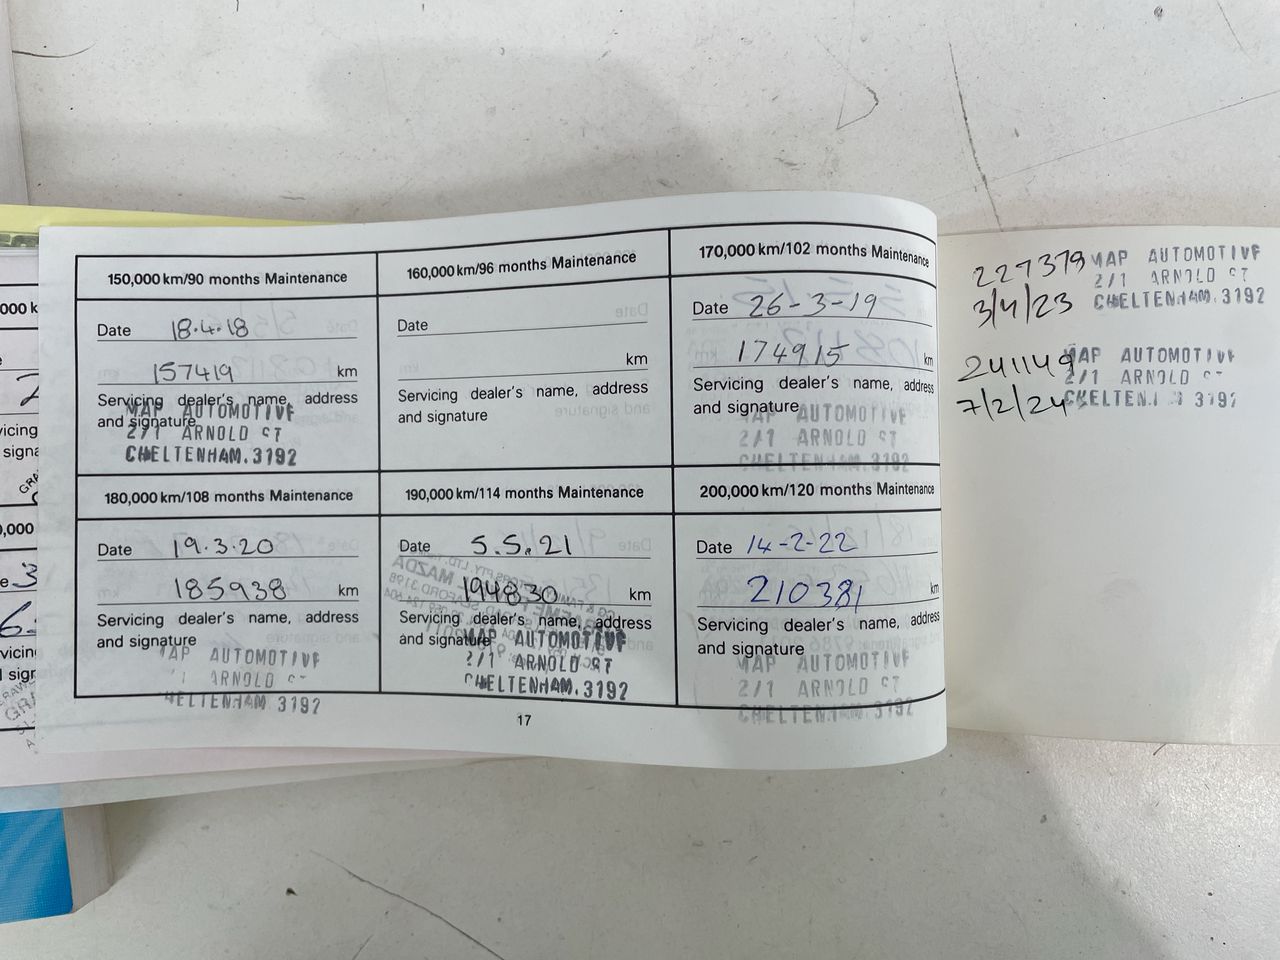 150,000 km/90 months Maintenance
Date 18.4.18
157419 km
Servicing dealer's name, address
and signature
MAP AUTOMOTIVE
2/1 ARNOLD ST
CHELTENHAM.3192
160,000 km/96 months Maintenance
Date
km
Servicing dealer's name, address
and signature
170,000 km/102 months Maintenance
Date 26-3-19
174915 km
Servicing dealer's name, address
and signature
MAP AUTOMOTIVE
2/1 ARNOLD ST
CHELTENHAM.3192
180,000 km/108 months Maintenance
Date 19.3.20
185938 km
Servicing dealer's name, address
and signature
MAP AUTOMOTIVE
ARNOLD ST
CHELTENHAM 3192
190,000 km/114 months Maintenance
Date 5.5.21
194830 km
Servicing dealer's name, address
and signature
MAP AUTOMOTIVE
2/1 ARNOLD ST
CHELTENHAM.3192
200,000 km/120 months Maintenance
Date 14-2-22
210381 km
Servicing dealer's name, address
and signature
MAP AUTOMOTIVE
2/1 ARNOLD ST
CHELTENHAM.3192
17
227379 MAP AUTOMOTIVE
3/4/23 2/1 ARNOLD ST
CHELTENHAM.3192
241149 MAP AUTOMOTIVE
7/2/24 2/1 ARNOLD ST
CHELTENHAM 3192